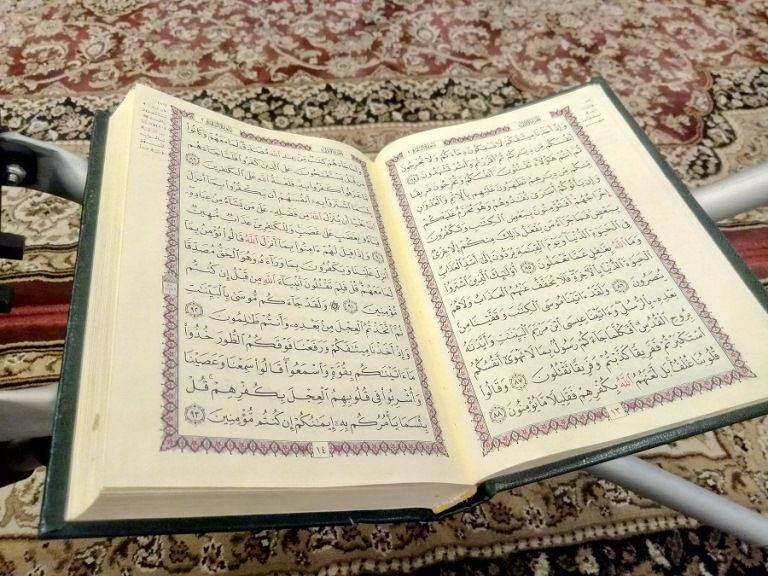 وَإِذْ أَخَذْنَا مِيثَٰقَكُمْ لَا تَسْفِكُونَ دِمَآءَكُمْ وَلَا تُخْرِجُونَ
أَنفُسَكُم مِّن دِيَٰرِكُمْ ثُمَّ أَقْرَرْتُمْ وَأَنتُمْ تَشْهَدُونَ ٨٤
ثُمَّ أَنتُمْ هَٰٓؤُلَآءِ تَقْتُلُونَ أَنفُسَكُمْ وَتُخْرِجُونَ فَرِيقًا
مِّنكُم مِّن دِيَٰرِهِمْ تَظَٰهَرُونَ عَلَيْهِم بِٱلْإِثْمِ وَٱلْعُدْوَٰنِ
وَإِن يَأْتُوكُمْ أُسَٰرَىٰ تُفَٰدُوهُمْ وَهُوَ مُحَرَّمٌ عَلَيْكُمْ
إِخْرَاجُهُمْ أَفَتُؤْمِنُونَ بِبَعْضِ ٱلْكِتَٰبِ وَتَكْفُرُونَ
بِبَعْضٍ فَمَا جَزَآءُ مَن يَفْعَلُ ذَٰلِكَ مِنكُمْ إِلَّا خِزْىٌ
فِى ٱلْحَيَوٰةِ ٱلدُّنْيَا وَيَوْمَ ٱلْقِيَٰمَةِ يُرَدُّونَ إِلَىٰٓ أَشَدِّ ٱلْعَذَابِ
وَمَا ٱللَّهُ بِغَٰفِلٍ عَمَّا تَعْمَلُونَ ٨٥ أُو۟لَٰٓئِكَ ٱلَّذِينَ ٱشْتَرَوُا۟
ٱلْحَيَوٰةَ ٱلدُّنْيَا بِٱلْءَاخِرَةِ فَلَا يُخَفَّفُ عَنْهُمُ ٱلْعَذَابُ وَلَا هُمْ
يُنصَرُونَ ٨٦ وَلَقَدْ ءَاتَيْنَا مُوسَى ٱلْكِتَٰبَ وَقَفَّيْنَا مِنۢ
بَعْدِهِۦ بِٱلرُّسُلِ وَءَاتَيْنَا عِيسَى ٱبْنَ مَرْيَمَ ٱلْبَيِّنَٰتِ وَأَيَّدْنَٰهُ
بِرُوحِ ٱلْقُدُسِ أَفَكُلَّمَا جَآءَكُمْ رَسُولٌۢ بِمَا لَا تَهْوَىٰٓ أَنفُسُكُمُ
ٱسْتَكْبَرْتُمْ فَفَرِيقًا كَذَّبْتُمْ وَفَرِيقًا تَقْتُلُونَ ٨٧ وَقَالُوا۟
قُلُوبُنَا غُلْفٌۢ بَل لَّعَنَهُمُ ٱللَّهُ بِكُفْرِهِمْ فَقَلِيلًا مَّا يُؤْمِنُونَ ٨٨
١٣
وَلَمَّا جَآءَهُمْ كِتَٰبٌ مِّنْ عِندِ ٱللَّهِ مُصَدِّقٌ لِّمَا مَعَهُمْ وَكَانُوا۟
مِن قَبْلُ يَسْتَفْتِحُونَ عَلَى ٱلَّذِينَ كَفَرُوا۟ فَلَمَّا جَآءَهُم
مَّا عَرَفُوا۟ كَفَرُوا۟ بِهِۦ فَلَعْنَةُ ٱللَّهِ عَلَى ٱلْكَٰفِرِينَ ٨٩
بِئْسَمَا ٱشْتَرَوْا۟ بِهِۦٓ أَنفُسَهُمْ أَن يَكْفُرُوا۟ بِمَآ أَنزَلَ
ٱللَّهُ بَغْيًا أَن يُنَزِّلَ ٱللَّهُ مِن فَضْلِهِۦ عَلَىٰ مَن يَشَآءُ مِنْ عِبَادِهِۦ
فَبَآءُو بِغَضَبٍ عَلَىٰ غَضَبٍ وَلِلْكَٰفِرِينَ عَذَابٌ مُّهِينٌ
٩٠ وَإِذَا قِيلَ لَهُمْ ءَامِنُوا۟ بِمَآ أَنزَلَ ٱللَّهُ قَالُوا۟ نُؤْمِنُ بِمَآ
أُنزِلَ عَلَيْنَا وَيَكْفُرُونَ بِمَا وَرَآءَهُۥ وَهُوَ ٱلْحَقُّ مُصَدِّقًا
لِّمَا مَعَهُمْ قُلْ فَلِمَ تَقْتُلُونَ أَنۢبِيَآءَ ٱللَّهِ مِن قَبْلُ إِن كُنتُم
مُّؤْمِنِينَ ٩١ وَلَقَدْ جَآءَكُم مُّوسَىٰ بِٱلْبَيِّنَٰتِ
ثُمَّ ٱتَّخَذْتُمُ ٱلْعِجْلَ مِنۢ بَعْدِهِۦ وَأَنتُمْ ظَٰلِمُونَ ٩٢
وَإِذْ أَخَذْنَا مِيثَٰقَكُمْ وَرَفَعْنَا فَوْقَكُمُ ٱلطُّورَ خُذُوا۟
مَآ ءَاتَيْنَٰكُم بِقُوَّةٍ وَٱسْمَعُوا۟ قَالُوا۟ سَمِعْنَا وَعَصَيْنَا
وَأُشْرِبُوا۟ فِى قُلُوبِهِمُ ٱلْعِجْلَ بِكُفْرِهِمْ قُلْ
بِئْسَمَا يَأْمُرُكُم بِهِۦٓ إِيمَٰنُكُمْ إِن كُنتُم مُّؤْمِنِينَ ٩٣
١٤